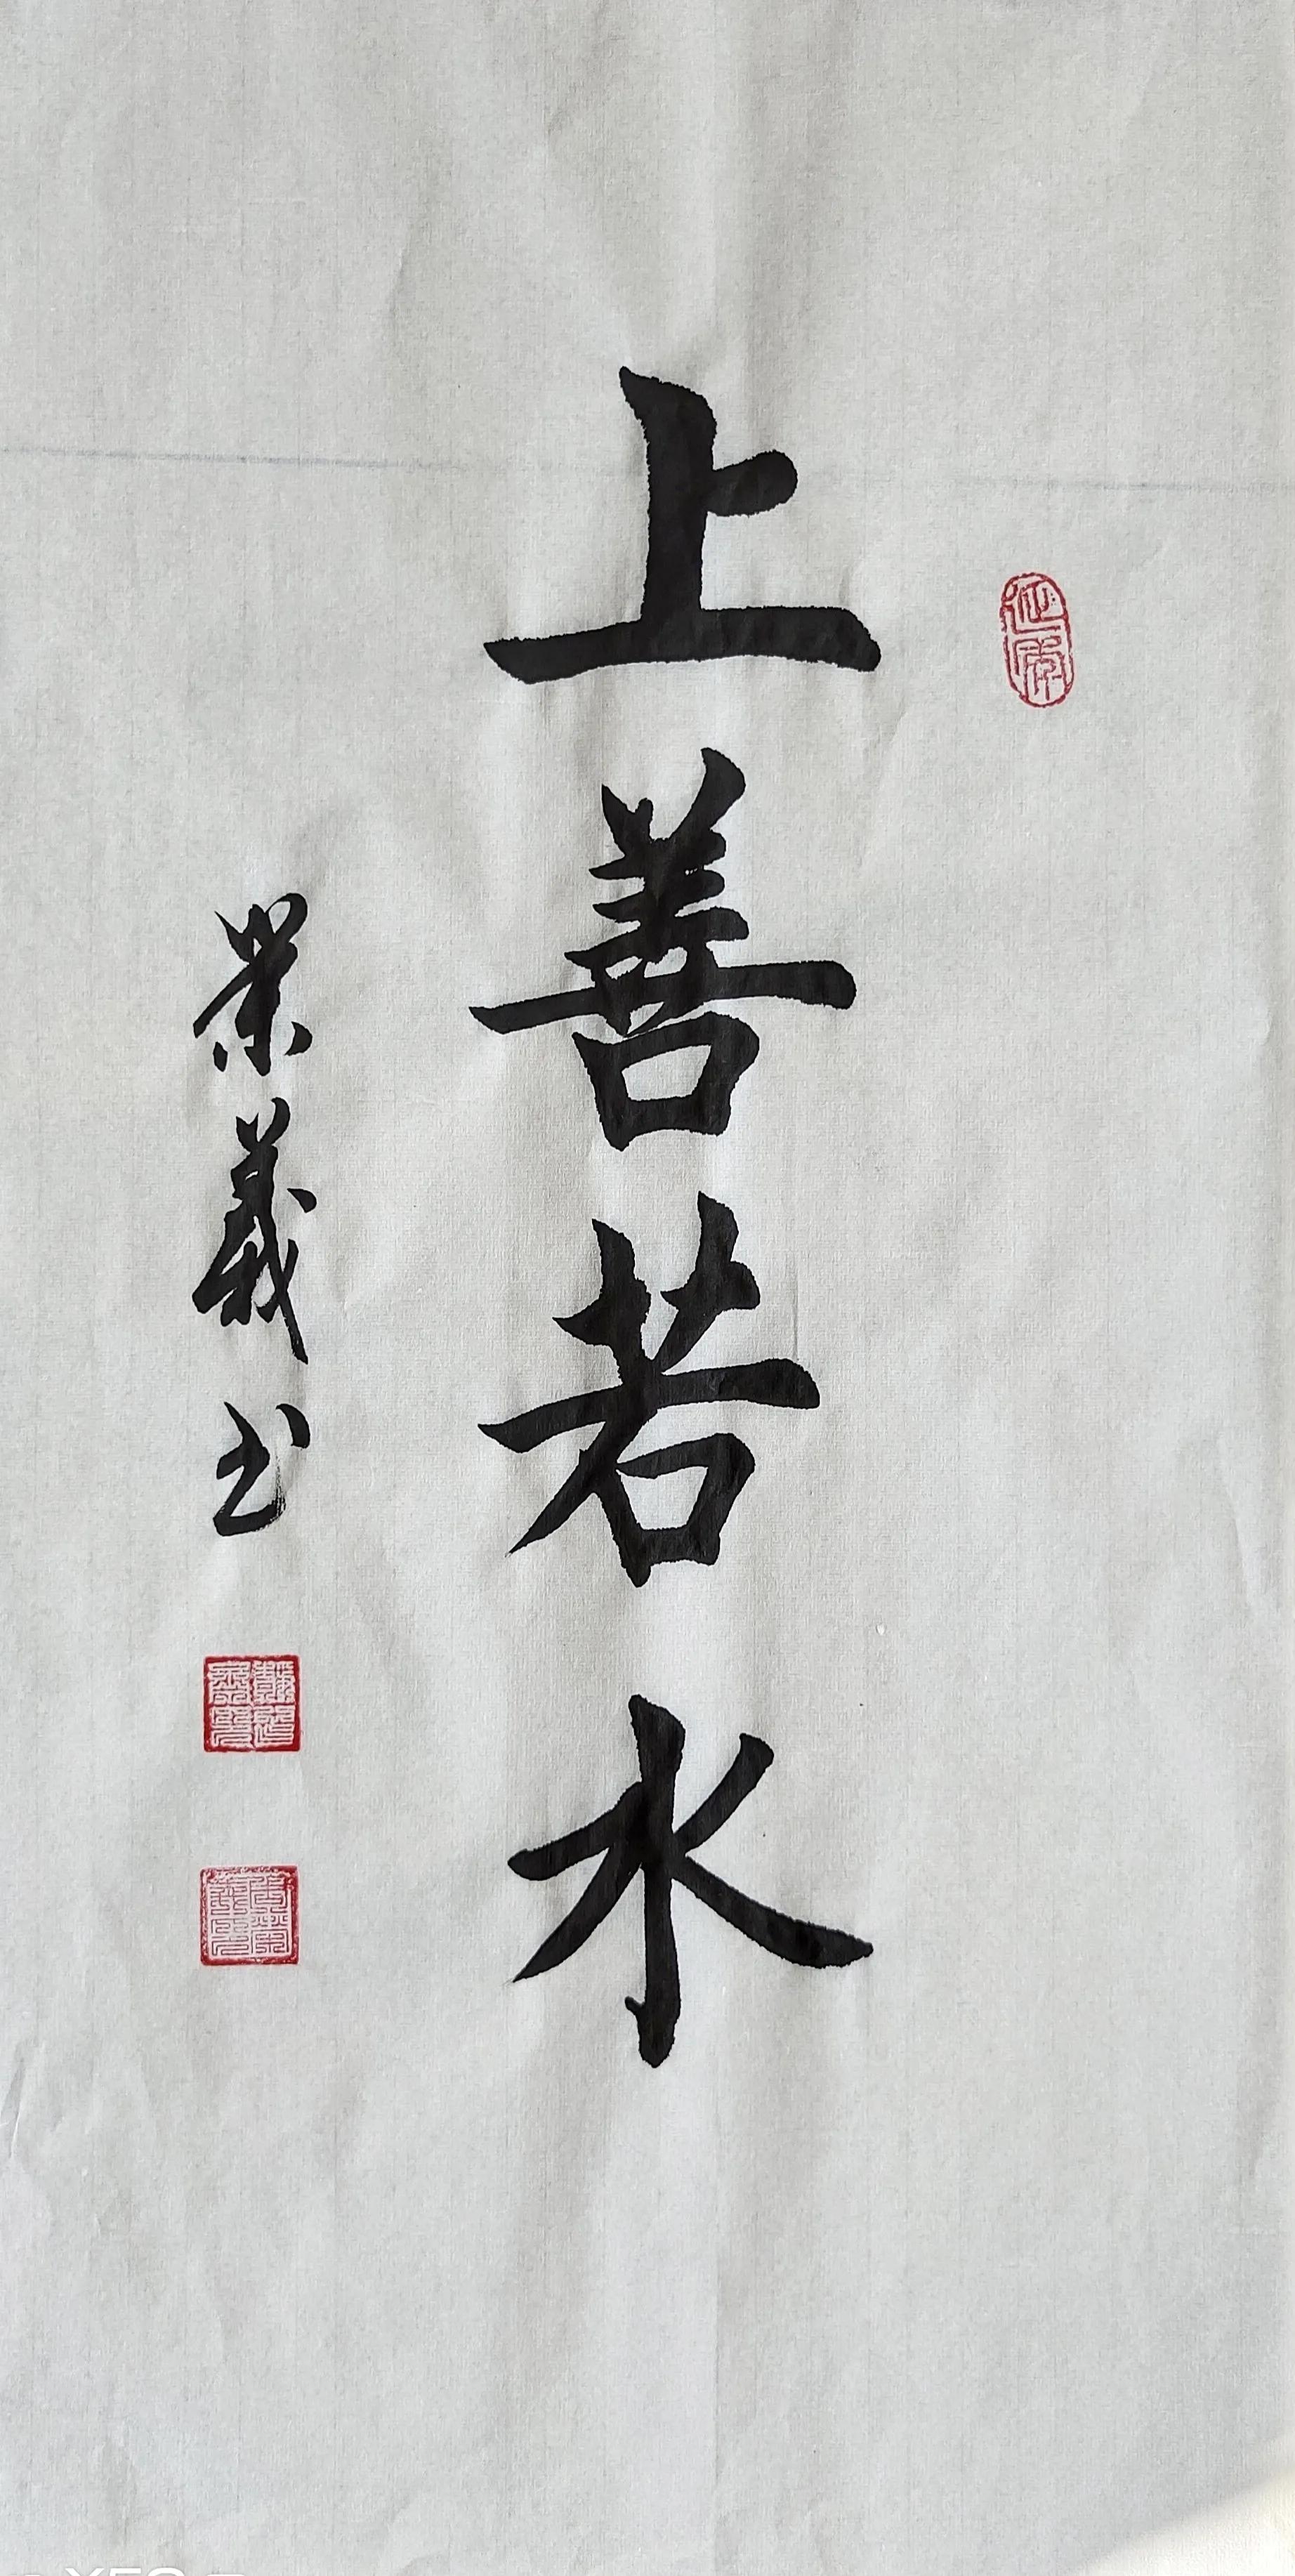 上善若水
業義书